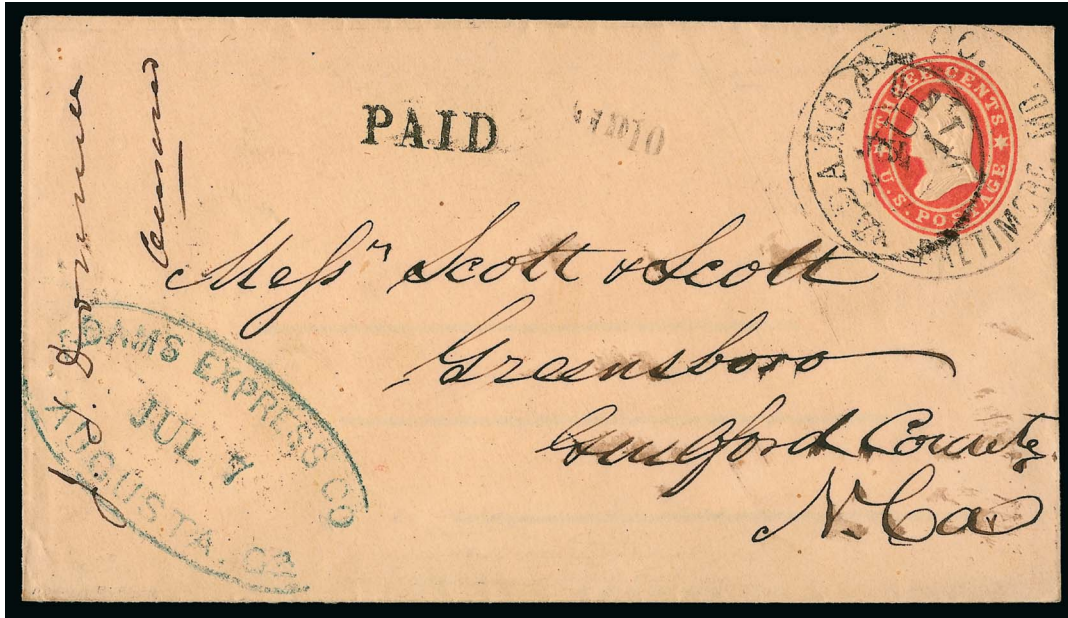 PAID
ADAMS EX. CO.
BALTIMORE MD.
THREE CENTS
U.S. POSTAGE
Messrs Scott & Scott
Greensboro
Guilford County
N. Ca
ADAMS EXPRESS CO
JUL 7
AUGUSTA, GA